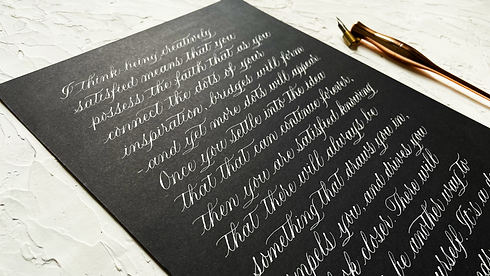 I think being creatively
satisfied means that you
possess the faith that as you
connect the dots of your
inspiration, bridges will form
- and yet more dots will appear.
Once you settle into the idea
that that can continue forever,
then you are satisfied knowing
that there will always be
something that draws you in,
compels you and drives you
look closer. There will
be another way to
yourself. It's a